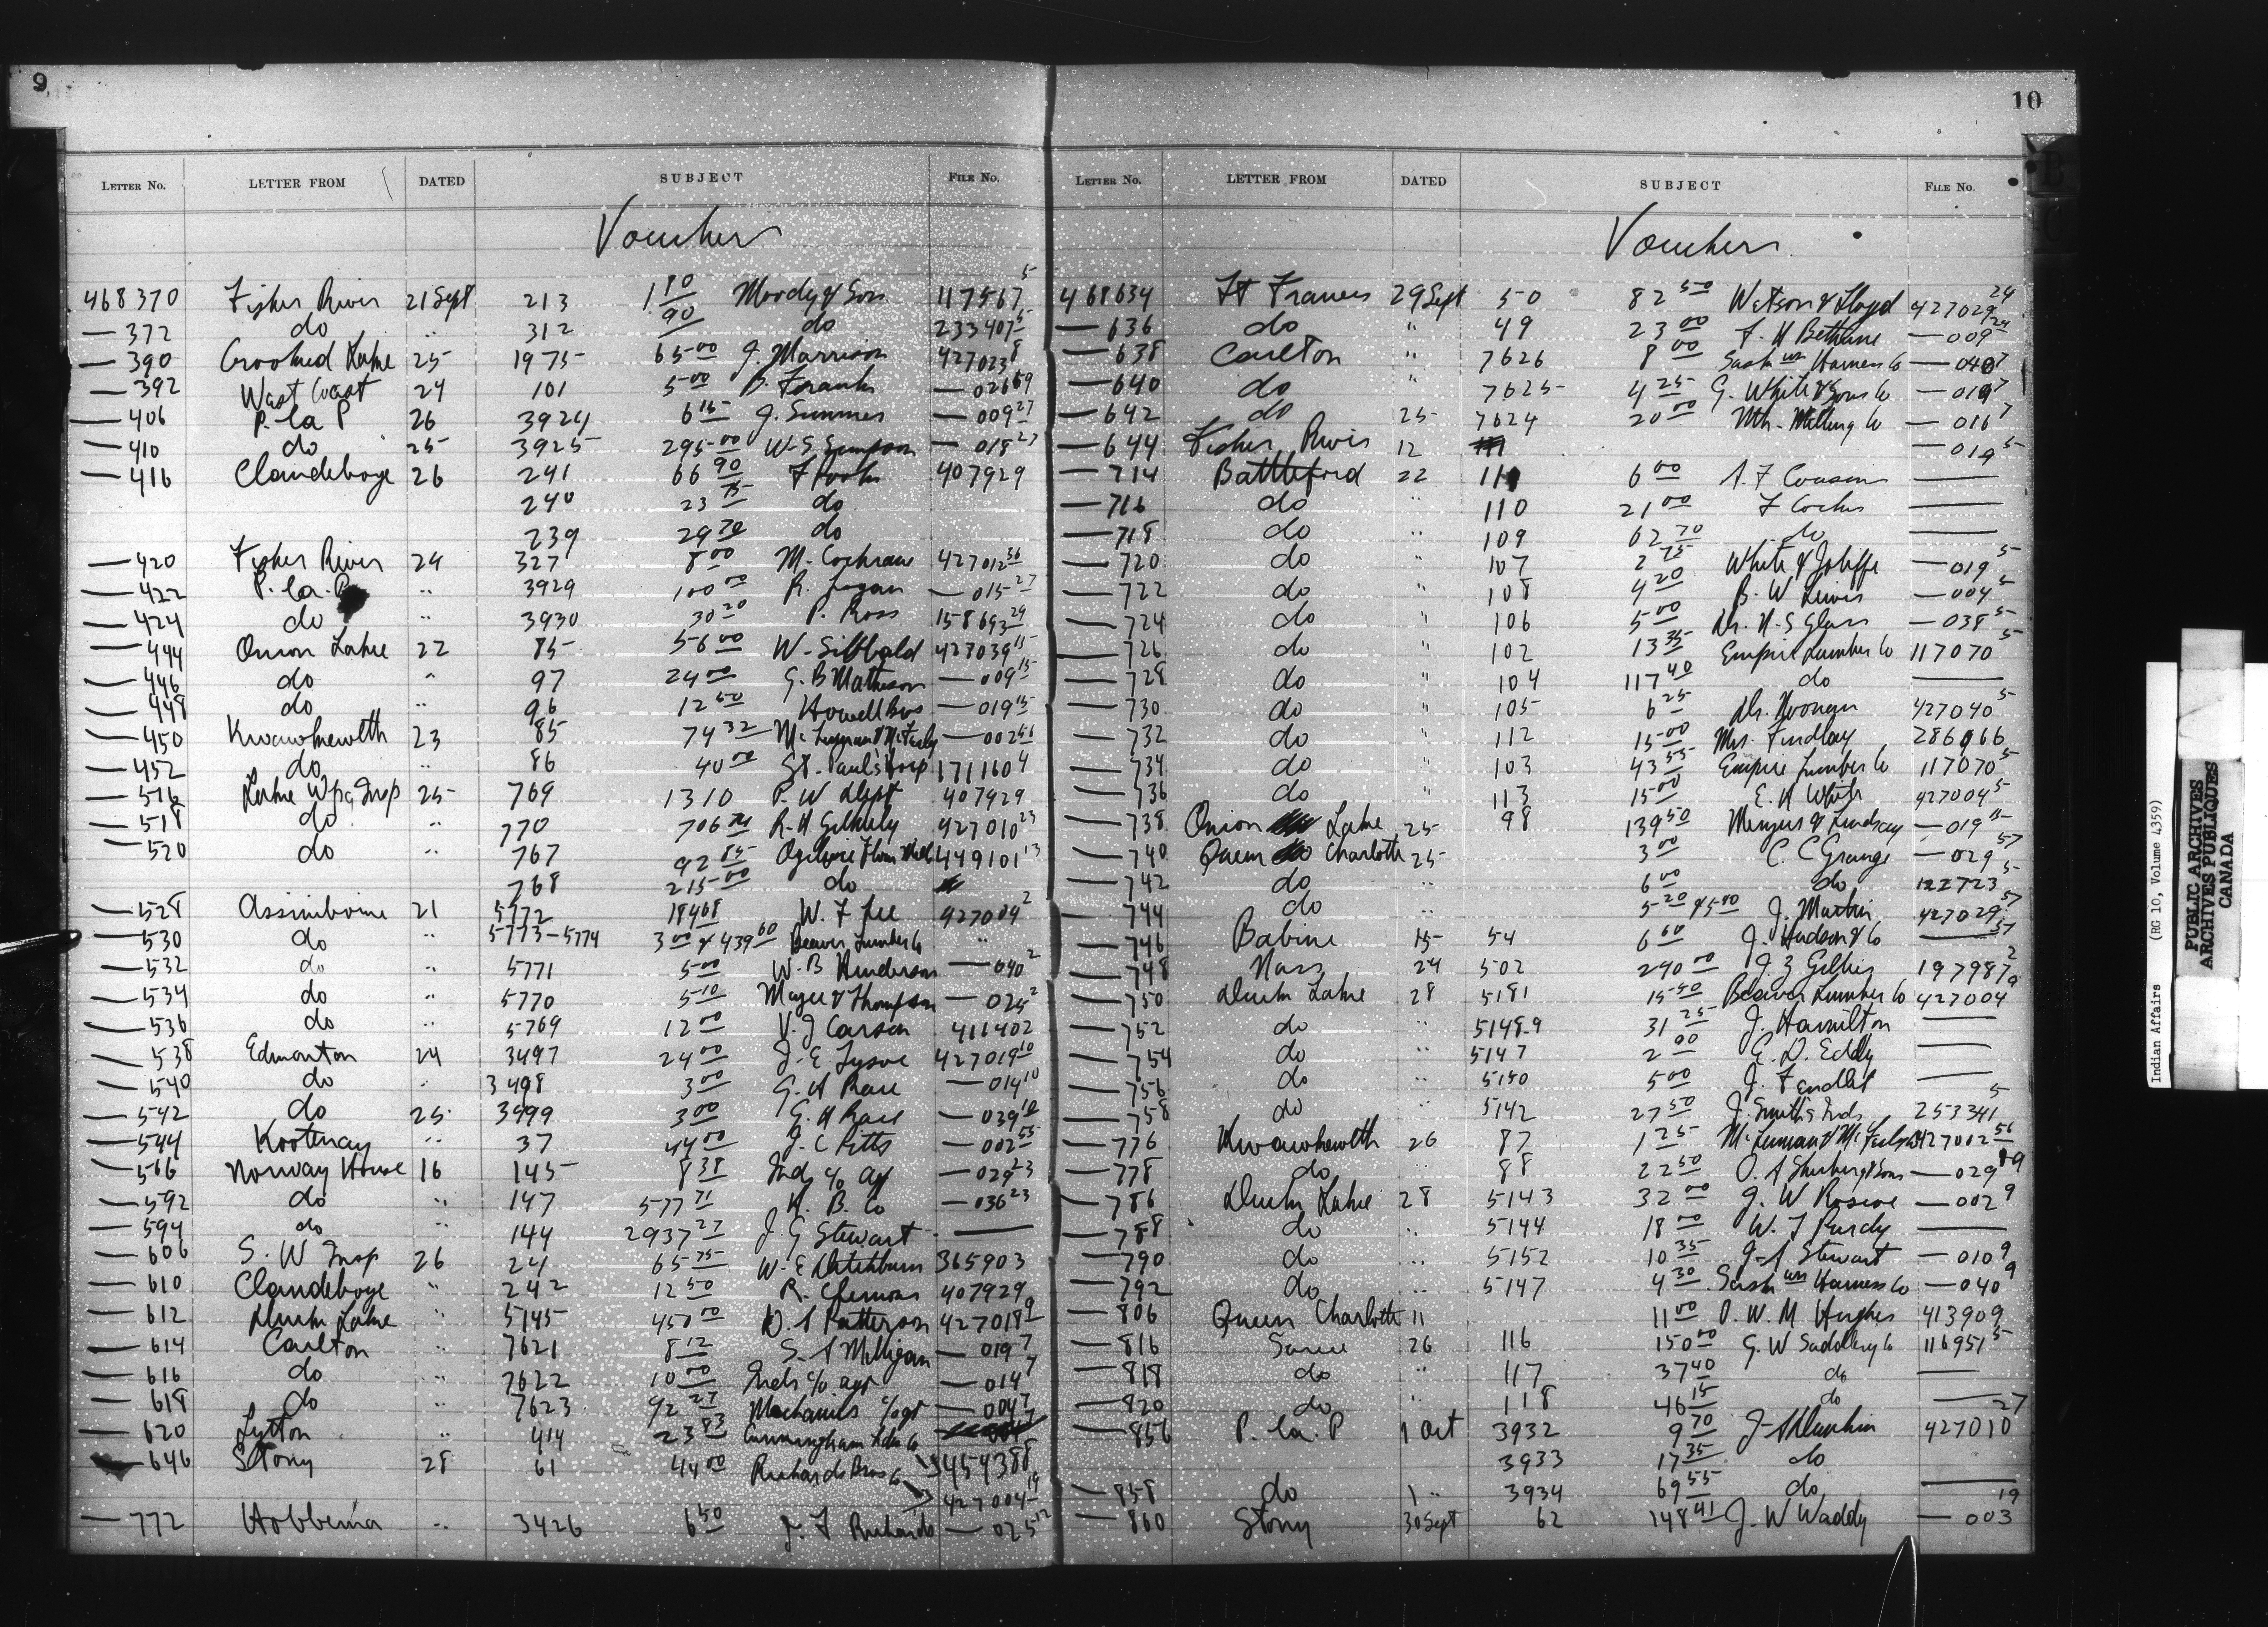 9
LETTER No. LETTER FROM DATED SUBJECT FILE No.
Vouchers
468370 Fisher River 21 Sept 213 1 80 Moody & Son 117567 5
— 372 do " 312 90 do 233407 5
— 390 Crooked Lake 25 1975 65 00 J. Marrison 427023 8
— 392 West Coast 24 101 5 00 B. Franks — 026 59
— 406 P. la P 26 3924 6 15 J. Summer — 009 27
— 410 do 25 3925 295 00 W. S. Simpson — 018 27
— 416 Clandeboye 26 241 66 90 407929
240 23 75 do
239 29 70 do
— 420 Fisher River 24 327 8 00 M. Cochrane 427012 36
— 422 P. la. P " 3929 100 00 R. Logan — 015 27
— 424 do " 3930 30 20 P. Ross 158693 29
— 444 Onion Lake 22 85 56 00 W. Sibbald 427039 15
— 446 do " 97 24 00 G. B Matheson — 009 15
— 448 do " 96 12 50 Howell Bros — 019 15
— 450 Kwawkewlth 23 85 74 32 — 002 56
— 452 do " 86 40 00 St. Paul's Hosp 171160 4
— 516 Lake Wpg Insp 25 769 13 10 P. W Dept 407929
— 518 do " 770 706 R. H Gilhuly 427010 23
— 520 do " 767 92 85 Ogilvie Flour Mill 449101 13
768 215 00 do
— 528 Assiniboine 21 5772 184 68 W. F Lee 427004 2
— 530 do " 5773-5774 3 00 & 439 60 Beaver Lumber Co "
— 532 do " 5771 5 00 W. B Henderson — 040 2
— 534 do " 5770 5 10 Magee & Thompson — 025 2
— 536 do " 5769 12 00 V. J Carson 411402
— 538 Edmonton 24 3497 24 00 J. E Lysne 427019 10
— 540 do " 3498 3 00 G. H Race — 014 10
— 542 do 25 3499 3 00 G. H Race — 039 10
— 544 Kootenay " 37 44 00 J. C Pitts — 002 55
— 566 Norway House 16 145 8 38 Indg c/o agt — 029 23
— 592 do " 147 577 71 H. B. Co — 036 23
— 594 do " 144 2937 27 J. G Stewart —
— 606 S. W Insp 26 24 65 75 W. E Ditchburn 365903
— 610 Clandeboye " 242 12 50 R. Clemons 407929
— 612 Duck Lake " 5145 450 00 D. A Patterson 427018 9
— 614 Carlton " 7621 8 12 S. A Milligan — 019 7
— 616 do " 7622 10 00 Inds c/o agt — 014 7
— 618 do " 7623 92 27 Mechanics c/o agt — 004 7
— 620 Lytton " 414 23 83 Cunningham Hdw Co
— 646 Stony 28 61 44 00 Richards Bros Co 454388
427004 19
— 772 Hobbema " 3426 6 50 J. F Richards — 025 12
10
LETTER No. LETTER FROM DATED SUBJECT FILE No.
Vouchers
468634 Ft Frances 29 Sept 50 82 50 Watson & Lloyd 427029 24
— 636 do " 49 23 00 F. H Bethune — 009 24
— 638 Carlton " 7626 8 00 Sask wn Harness Co — 040 7
— 640 do " 7625 4 25 G. White & Sons Co — 019 7
— 642 do 25 7624 20 00 Nth. Milling Co — 016 7
— 644 Fisher River 12 — 019 5
— 714 Battleford 22 111 6 00 A. F Cousin —
— 716 do " 110 21 00 F Cochin —
— 718 do " 109 62 70 do —
— 720 do " 107 2 75 White & Joliffe — 019 5
— 722 do " 108 4 20 B. W Lewis — 004 5
— 724 do " 106 5 00 Dr. H. S Glass — 038 5
— 726 do " 102 13 35 Empire Lumber Co 117070 5
— 728 do " 104 117 40 do —
— 730 do " 105 6 25 Dr. Noonan 427040 5
— 732 do " 112 15 00 Mrs. Findlay 286966
— 734 do " 103 43 55 Empire Lumber Co 117070 5
— 736 do " 113 15 00 E. H White 427004 5
— 738 Onion Lake 25 98 139 50 Menzies & Lindsay — 019 15
— 740 Queen Charlotte 25 3 00 C. C Grange — 029 57
— 742 do " 6 00 do 122723 5
— 744 do " 5 20 & 5 00 J. Martin 427029 57
— 746 Babine 15 54 6 60 J. Hudson & Co — 57
— 748 Nass 24 502 290 00 J. Z Gillis 197987 2
— 750 Duck Lake 28 5181 15 50 Beaver Lumber Co 427004 9
— 752 do " 5148-9 31 25 J. Hamilton —
— 754 do " 5147 2 90 E. D. Eddy —
— 756 do " 5150 5 00 —
— 758 do " 5142 27 50 J. Smith & Inds 253341 5
— 776 Kwawkewlth 26 87 1 25 427002 56
— 778 do " 88 22 50 — 029
— 786 Duck Lake 28 5143 32 00 J. W Roscoe — 002 9
— 788 do " 5144 18 00 W. J Purdy —
— 790 do " 5152 10 35 J. A Stewart — 010 9
— 792 do " 5147 4 30 Sask wn Harness Co — 040 9
— 806 Queen Charlotte 11 11 00 D. W. M Hughes 413909
— 816 Sarcee 26 116 150 00 G. W Saddlery Co 116951 5
— 818 do " 117 37 40 do —
— 820 do " 118 46 15 do —
— 856 P. la. P 1 Oct 3932 9 70 427010 27
3933 17 35 do
— 858 do 1 " 3934 69 55 do —
— 860 Stony 30 Sept 62 148 41 J. W Waddy — 003 19
Indian Affairs (RG 10, Volume 4359)
PUBLIC ARCHIVES
ARCHIVES PUBLIQUES
CANADA